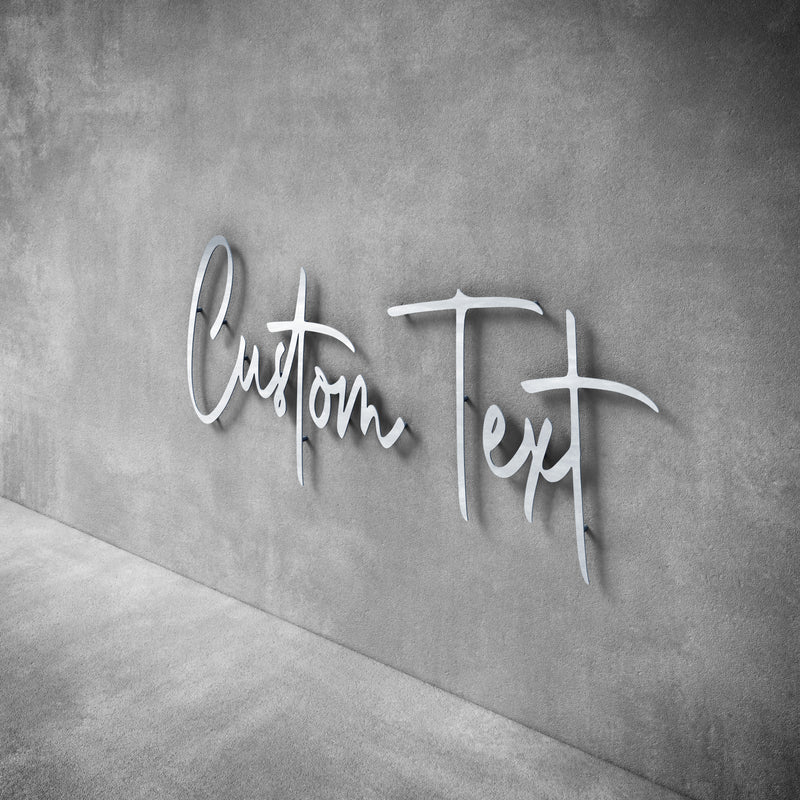 Custom Text